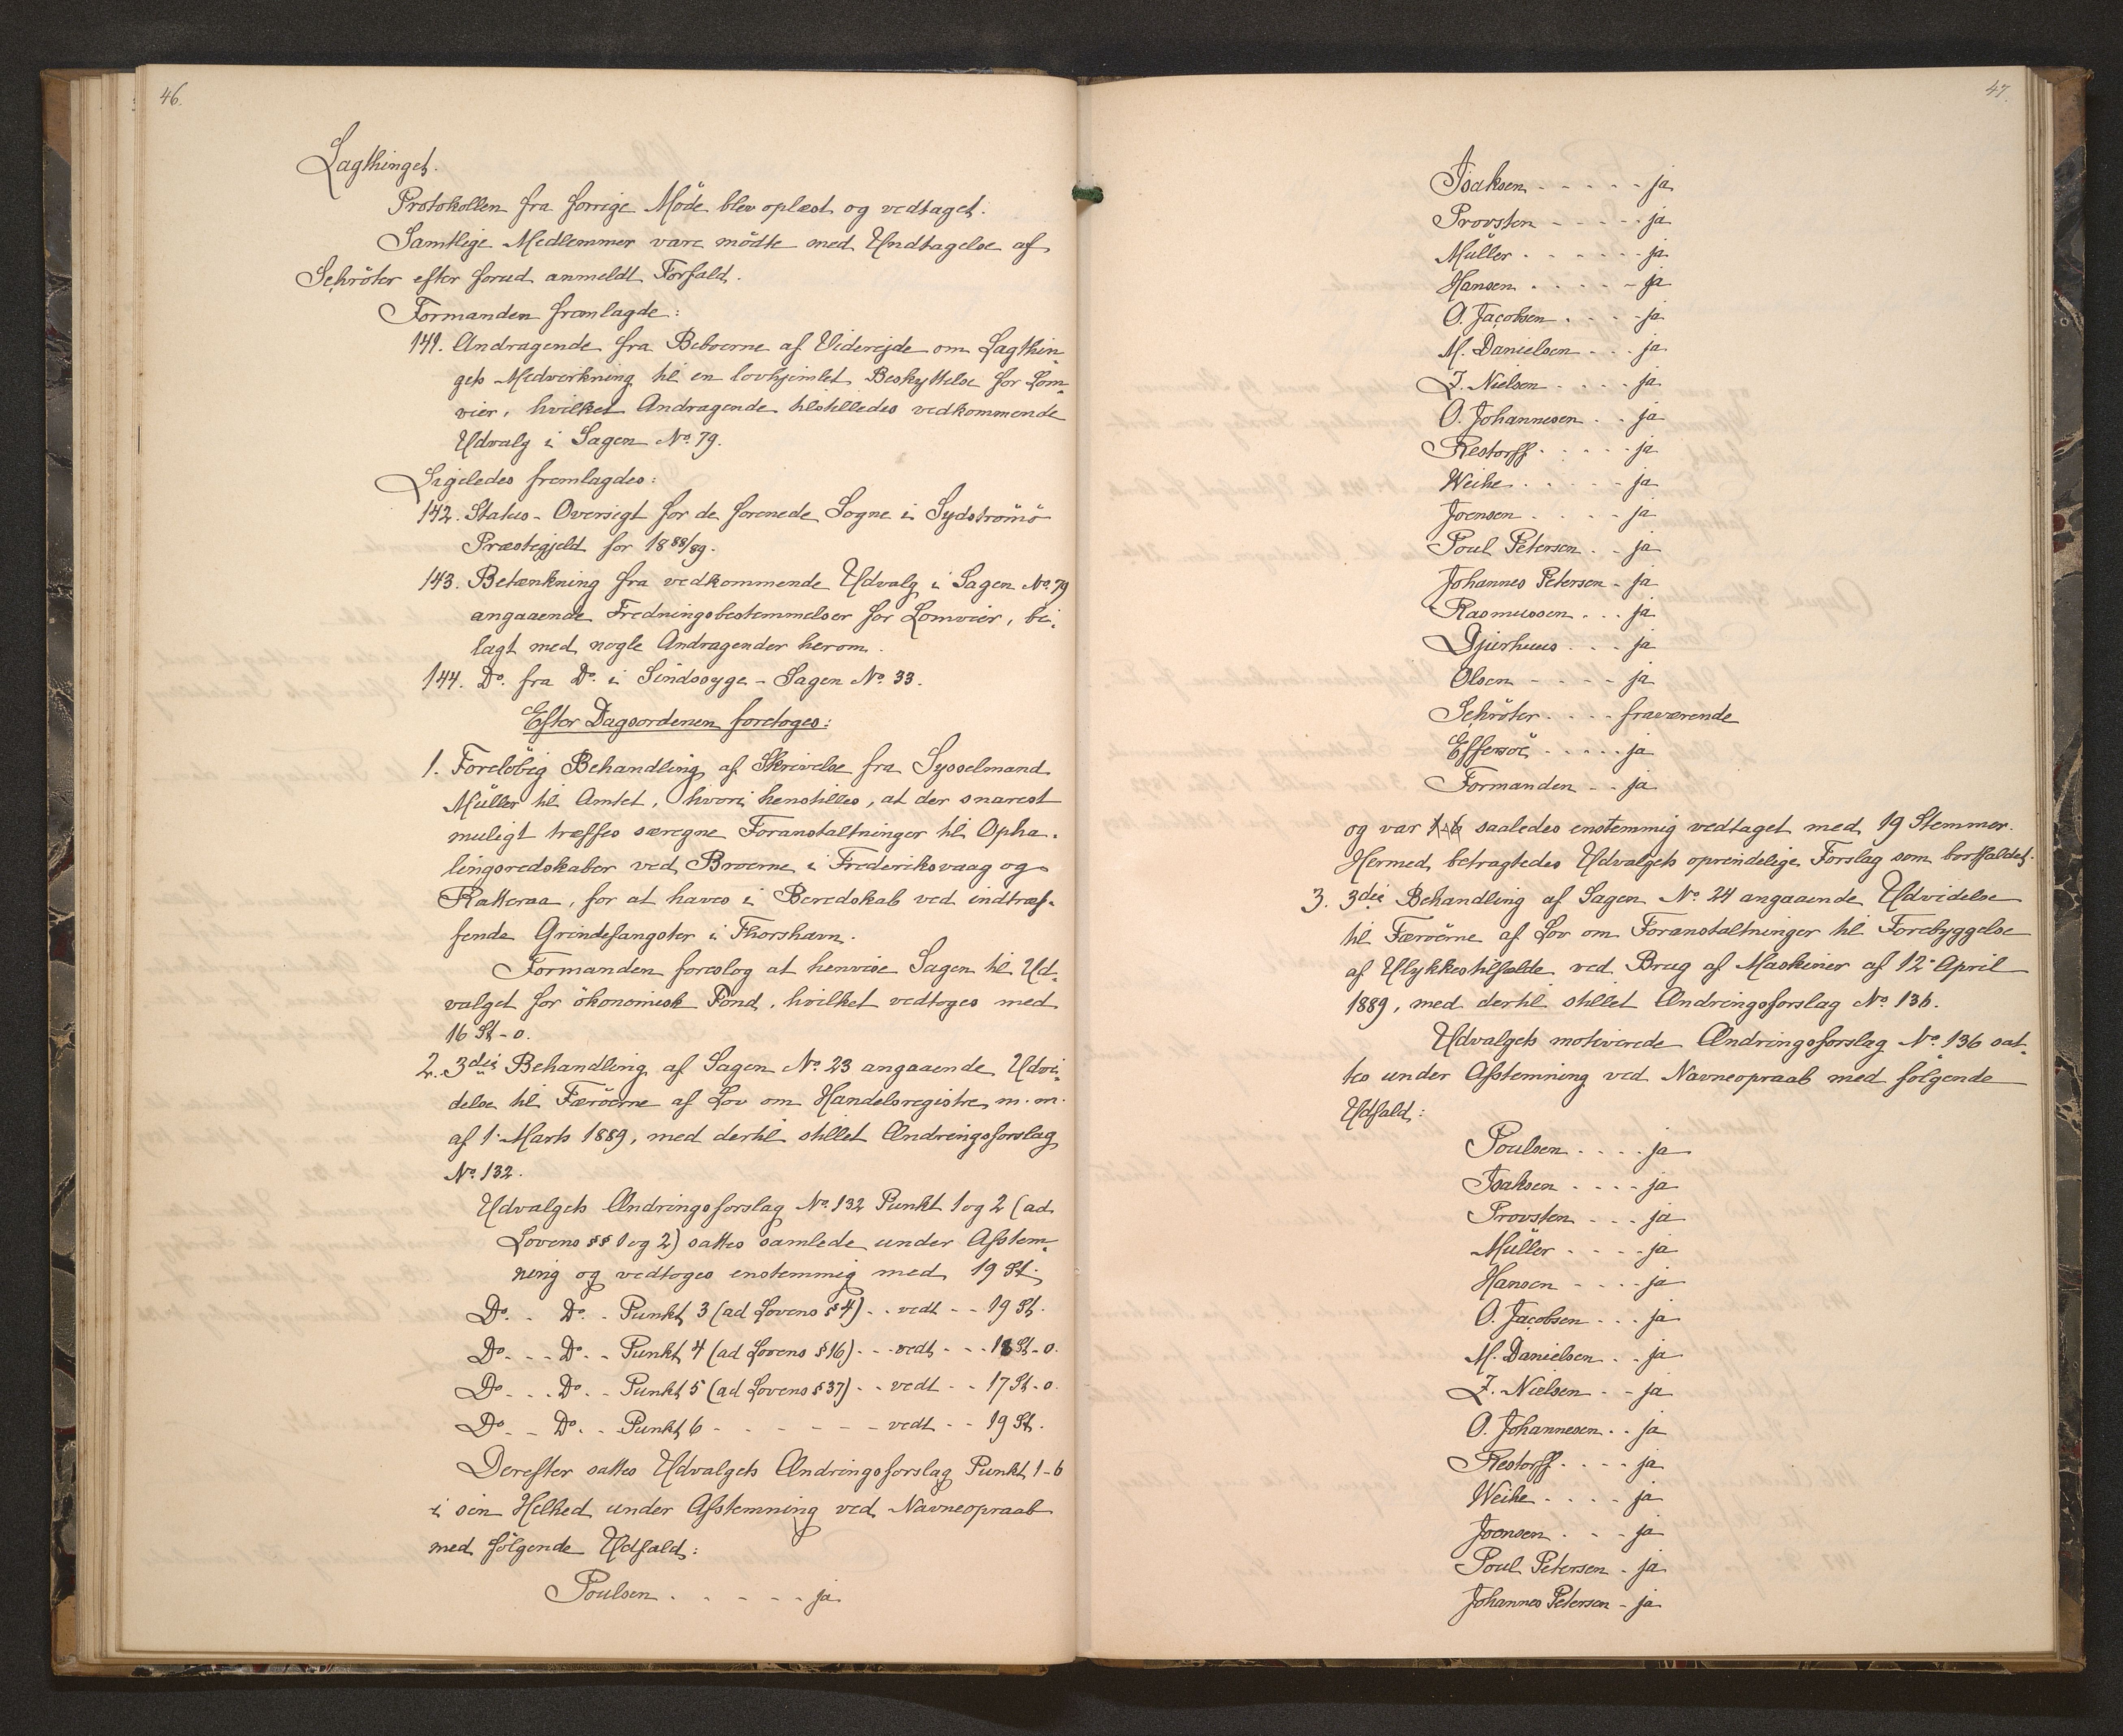 46.
Lagthinget.
Protokollen fra forrige Möde blev oplæst og vedtaget.
Samtlige Medlemmer vare mödte med Undtagelse af
Schröter efter forud anmeldt Forfald.
Formanden fremlagde:
141. Andragende fra Beboerne af Viderejde om Lagthin-
gets Medvirkning til en lovhjemlet Beskyttelse for Lom-
vier, hvilket Andragende tilstilledes vedkommende
Udvalg i Sagen No. 79.
Ligeledes fremlagdes:
142. Status-Oversigt for de forenede Sogne i Sydströmö
Præstegjeld for 1888/89.
143. Betænkning fra vedkommende Udvalg i Sagen No. 79
angaaende Fredningsbestemmelser for Lomvier, bi-
lagt med nogle Andragender herom.
144. Do. fra Do. i Sindssyge-Sagen No. 33.
Efter Dagsordenen foretoges:
1. Forelöbig Behandling af Skrivelse fra Sysselmand
Müller til Amtet, hvori henstilles, at der snarest
muligt træffes særegne Foranstaltninger til Opha-
lingsredskaber ved Broerne i Frederiksvaag og
Ratteraa, for at haves i Beredskab ved indtræf-
fende Grindefangster i Thorshavn.
Formanden foreslog at henvise Sagen til Ud-
valget for ökonomisk Fond, hvilket vedtoges med
16 St - 0.
2. 3die Behandling af Sagen No. 23 angaaende Udvi-
delse til Færöerne af Lov om Handelsregistre m. m.
af 1. Marts 1889, med dertil stillet Ændringsforslag
No. 132.
Udvalgets Ændringsforslag No. 132 Punkt 1 og 2 (ad
Lovens §§ 1 og 2) sattes samlede under Afstem-
ning og vedtoges enstemmig med 19 St.
Do. - Do. - Punkt 3 (ad Lovens § 4) - - vedt - - 19 St.
Do. - - Do. - - Punkt 4 (ad Lovens § 16) - - - vedt - - - 18 St - 0.
Do - - - Do. - - Punkt 5 (ad Lovens § 37) - - vedt - - 17 St - 0.
Do - - Do. - - Punkt 6 - - - - - - vedt - - 19 St.
Derefter sattes Udvalgets Ændringsforslag Punkt 1-6
i sin Helhed under Afstemning ved Navneopraab
med fölgende Udfald:
Poulsen - - - - - - ja
47.
Isaksen - - - - - ja
Provsten - - - - - ja
Müller - - - - - - ja
Hansen - - - - - ja
O. Jacobsen - - - - ja
M. Danielsen - - - ja
Z. Nielsen - - - - ja
O. Johannesen - - ja
Restorff - - - - - ja
Weihe - - - - - ja
Joensen - - - - ja
Poul Petersen - - ja
Johannes Petersen - ja
Rasmussen - - - ja
Djurhuus - - - ja
Olsen - - - - ja
Schröter - - - - fraværende
Effersöe - - - - - ja
Formanden - - ja
og var saaledes enstemmig vedtaget med 19 Stemmer.
Hermed betragtedes Udvalgets oprindelige Forslag som bortfaldet.
3. 3die Behandling af Sagen No. 24 angaaende Udvidelse
til Færöerne af Lov om Foranstaltninger til Forebyggelse
af Ulykkestilfælde ved Brug af Maskiner af 12. April
1889, med dertil stillet Ændringsforslag No. 136.
Udvalgets motiverede Ændringsforslag No. 136 sat-
tes under Afstemning ved Navneopraab med fölgende
Udfald:
Poulsen - - - - ja
Isaksen - - - - ja
Provsten - - - ja
Müller - - - - ja
Hansen - - - - ja
O. Jacobsen - - - ja
M. Danielsen - - ja
Z. Nielsen - - ja
O. Johannesen - - ja
Restorff - - - - ja
Weihe - - - - ja
Joensen - - - ja
Poul Petersen - ja
Johannes Petersen - ja